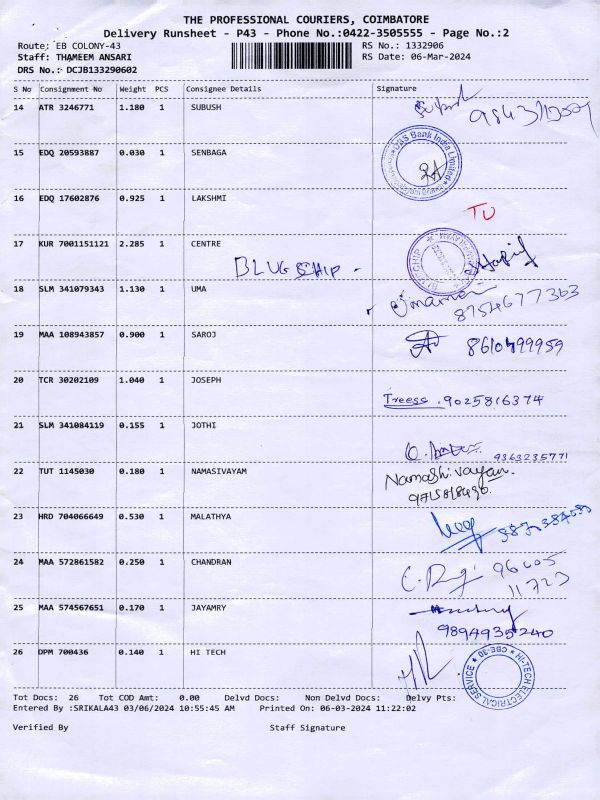 THE PROFESSIONAL COURIERS, COIMBATORE
Delivery Runsheet - P43 - Phone No.:0422-3505555 - Page No.:2
Route: EB COLONY-43 RS No.: 1332906
Staff: THAMEEM ANSARI RS Date: 06-Mar-2024
DRS No.: DCJB133290602
S No Consignment No Weight PCS Consignee Details Signature
14 ATR 3246771 1.180 1 SUBUSH
15 EDQ 20593887 0.030 1 SENBAGA
DBS Bank India Limited
16 EDQ 17602876 0.925 1 LAKSHMI
TU
17 KUR 7001151121 2.285 1 CENTRE
BLUE SHIP -
18 SLM 341079343 1.130 1 UMA
8754677363
19 MAA 108943857 0.900 1 SAROJ
8610499959
20 TCR 30202109 1.040 1 JOSEPH
Treesa .9025816374
21 SLM 341084119 0.155 1 JOTHI
9363235771
22 TUT 1145030 0.180 1 NAMASIVAYAM
Namashivayan.
23 HRD 704066649 0.530 1 MALATHYA
24 MAA 572861582 0.250 1 CHANDRAN
96005
11723
25 MAA 574567651 0.170 1 JAYAMRY
9894935240
26 DPM 700436 0.140 1 HI TECH
HI-TECH ELECTRICAL SERVICE * CBE-30 *
Tot Docs: 26 Tot COD Amt: 0.00 Delvd Docs: Non Delvd Docs: Delvy Pts:
Entered By :SRIKALA43 03/06/2024 10:55:45 AM Printed On: 06-03-2024 11:22:02
Verified By Staff Signature